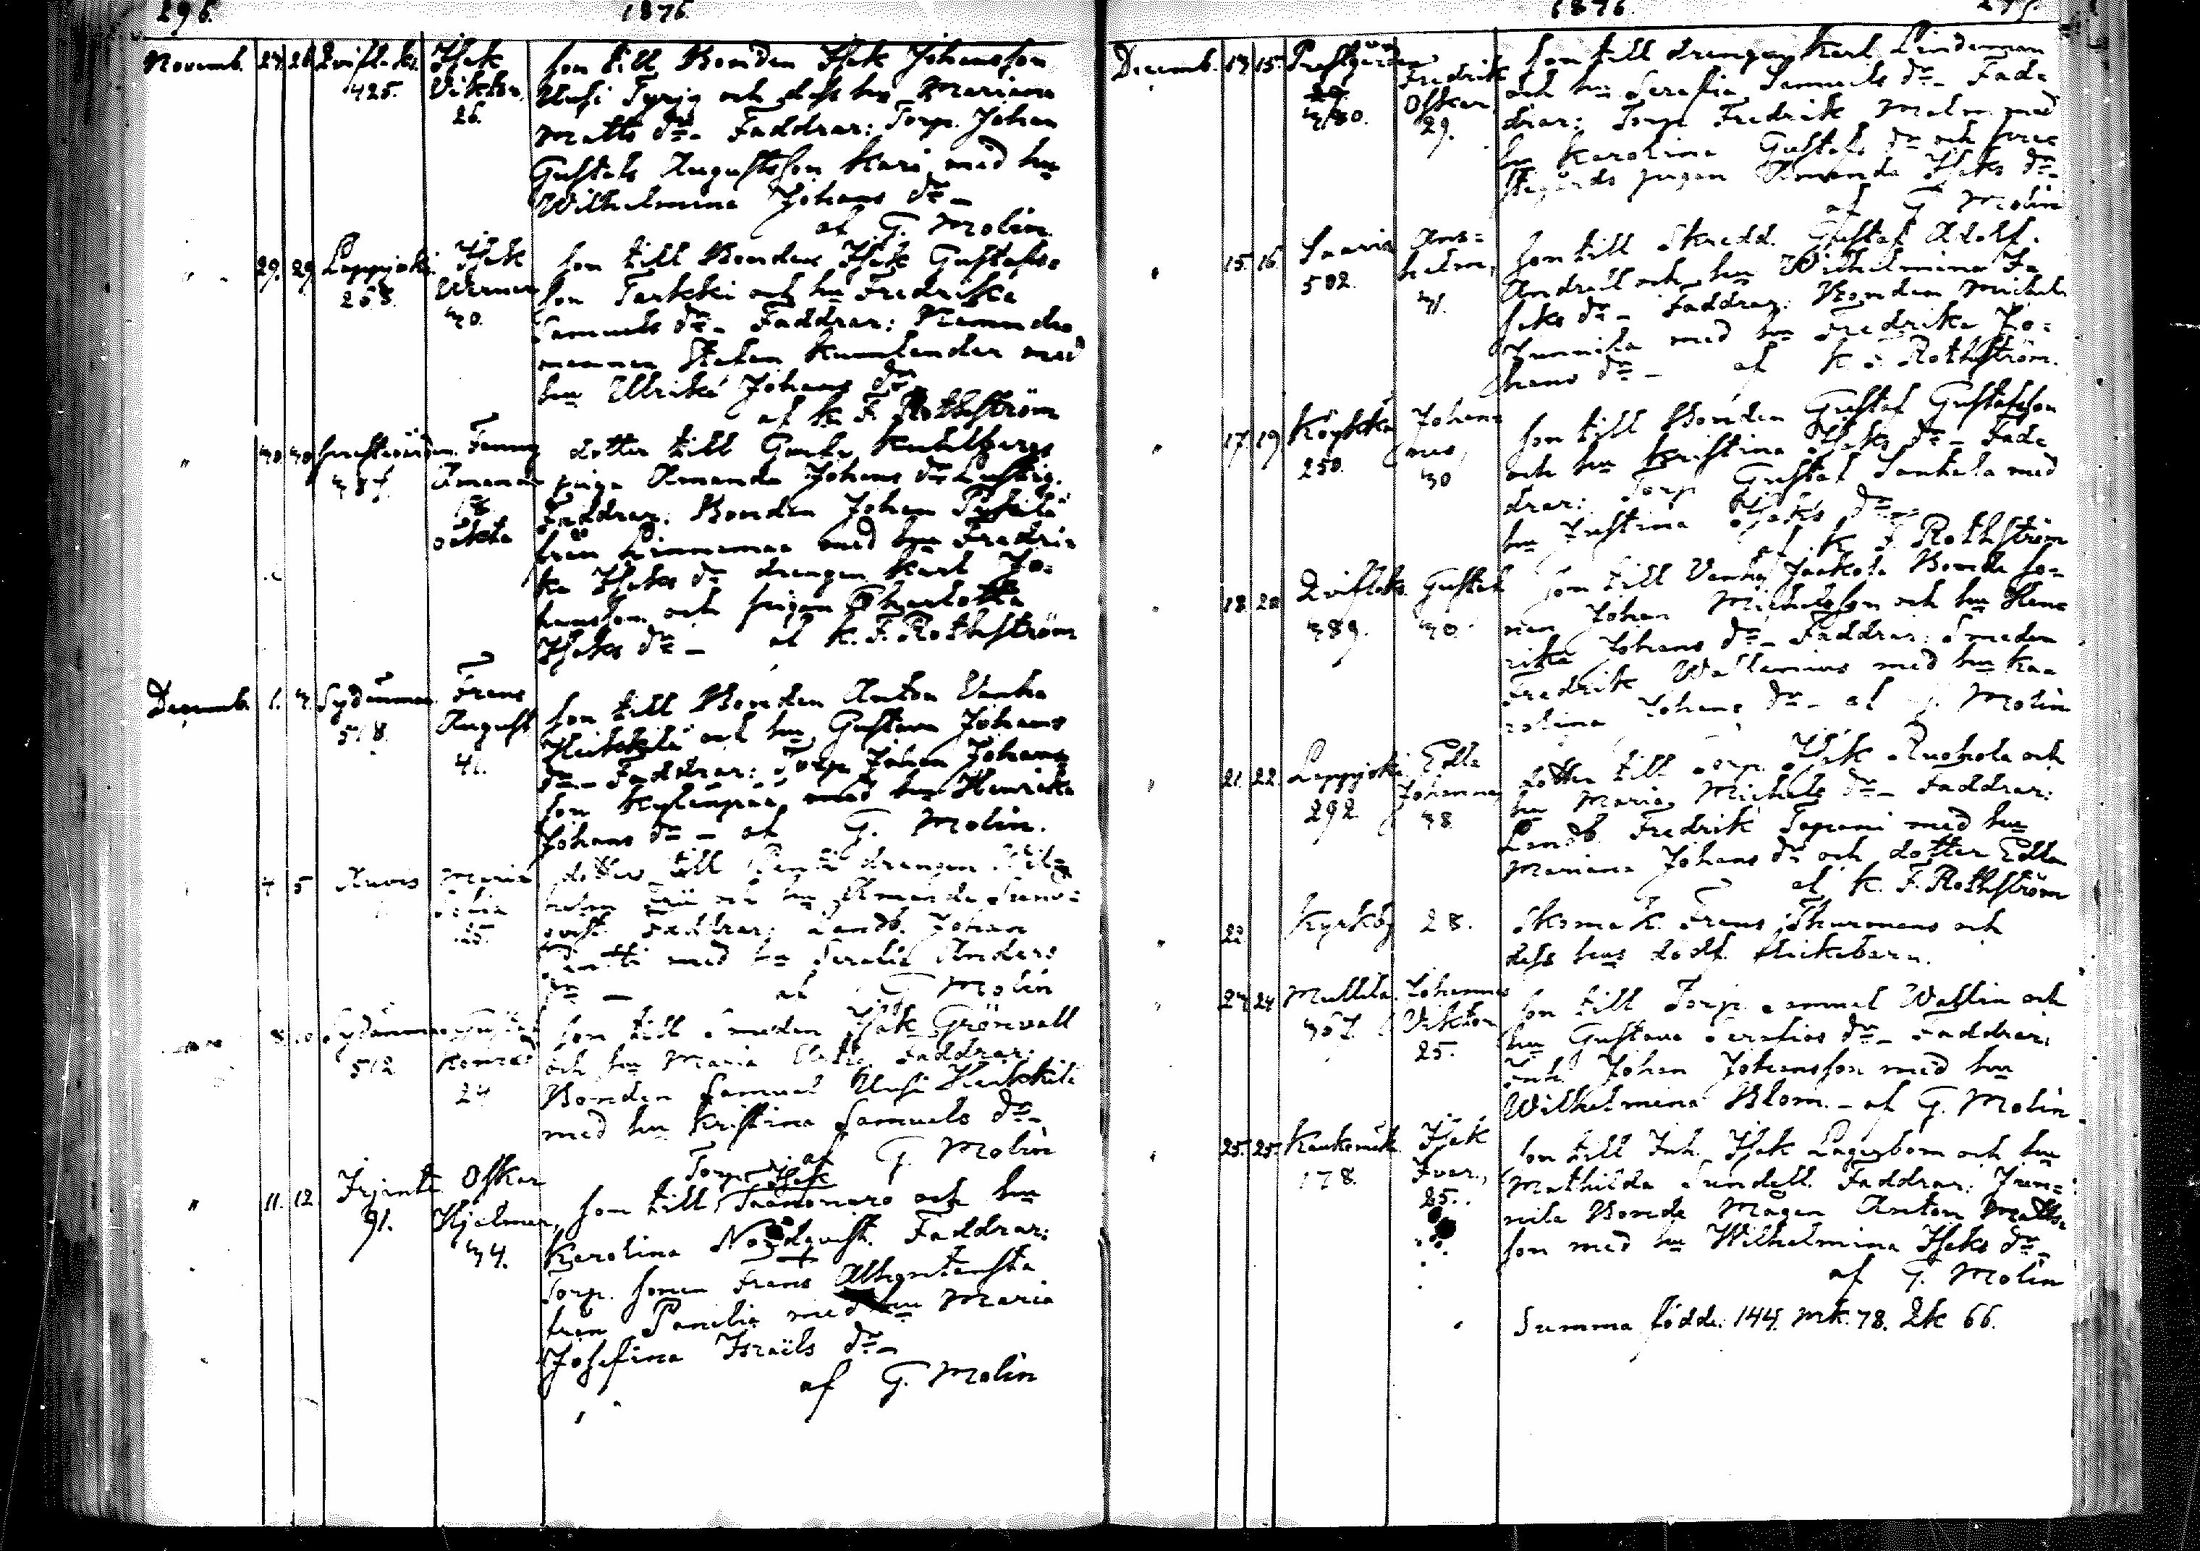 296. 1876.
Novemb. 24. 26. Qvifleks. 425. Isak Viktor, 26.
Son till Bonden Isak Johansson
Uusi Tyrjy och dess hu Mariana
Matts dr. Faddrar: Torp. Johan
Gustafs Augustsson Kari med hu
Wilhelmina Johans dr
af G. Molin.
" 29. 29. Lappijoki 268. Isak Werner 30.
Son till Bonden Isak Gustafs-
son Tarkki och hu Fredrika
Samuels dr. Faddrar: Nämnde-
mannen Stefan Kumlander med
hu Ullrika Johans dr
af K. F. Rothström
" 30. 30. 387. Fanny Amanda 18 oäkta
dotter till
pigan Amanda Johans dr
Faddrar: Bonden Johan
från Hinnerma med hu Fredri-
ka Isaks dr drengen Karl Jo-
hansson och pigan Charlotta
Isaks dr af K. F. Rothström
Decemb. 1. 3. Sydänmaa 518. Frans August 41.
Son till Bonden Anton Vanha
Heikkilä och hu Gustava Johans
dr. Faddrar: Torp. Johan Johans-
son Kylänpää med hu Henrika
Johans dr af G. Molin.
5 Auvois Maria Sofia 25.
dotter till drengen Wil-
helm och hu Amanda
Faddrar: Landb. Johan
Pentti med hu Serafia Anders
dr af G. Molin
8. 10 Sydänmaa 512 Gustaf Konrad 24
Son till Smeden Isak Grönvall
och hu Maria Faddrar:
Bonden Samuel Uusi Heikkilä
med hu Kristina Samuels dr
af G. Molin
" 11. 12. Irjante 91. Oskar Hjalmar, 34.
Torp. Isak
Son till och hu
Karolina Nordqvist. Faddrar:
Torp. sonen Frans
från Panelia med hu Maria
Josefina Israels dr
af G. Molin
1876.
Decemb. 13. 15. Prestgården 380. Fredrik Oskar, 29.
Son till drengen Karl Lindeman
och hu Serafia Samuels dr. Fad-
drar: Torp Fredrik Malm med
hu Karolina Gustafs dr och
pigan Amanda Isaks dr
af G. Molin
" 15. 16. Saaris 502. Ans- helm, 31.
Son till Skredd. Gustaf Adolf
Andrell och hu Wilhelmina I-
saks dr. Faddrar: Bonden Michel
Junnila med hu Fredrika Jo-
hans dr af K. F. Rothström.
" 17. 19. Köykkä 250. Johan- nes, 30
Son till Bonden Gustaf Gustafsson
och hu Kristina Isaks dr. Fad-
drar: Torp. Gustaf Santala med
hu Justina Isaks dr
af K. F. Rothström
" 18. 20. Qvifleks. 389. Gustaf 30.
Son till Vanha Jaakola Bonde so-
nen Johan Michelsson och hu Hen-
rika Johans dr. Faddrar: Smeden
Fredrik Wallenius med hu Ka-
rolina Johans dr af G. Molin
" 21. 22. Lappijoki 292. Edla Johanna, 38.
dotter till Torp. Isak Ruohola och
hu Maria Michels dr. Faddrar:
Landb. Fredrik Tapani med hu
Mariana Johans dr och dotter Edla
af K. F. Rothström
" 22. Kyrkby 28.
Skomak. Frans Thurmans och
dess hus dödf. flickebarn.
" 23 24 Mullila 367. Johannes Viktor 25.
Son till Torp. Samuel Wallin och
hu Gustava Serafias dr. Faddrar:
Inh. Johan Johansson med hu
Wilhelmina Blom. af G. Molin
" 25. 25. Kaukomäk. 178. Isak Ivar, 25.
Son till Inh. Isak Lagerbom och hu
Mathilda Sundell. Faddrar: Jun-
nila Bonde Magen Anton Matts-
son med hu Wilhelmina Isaks dr
af G. Molin
Summa födde: 144. Mk. 78. Qk 66.